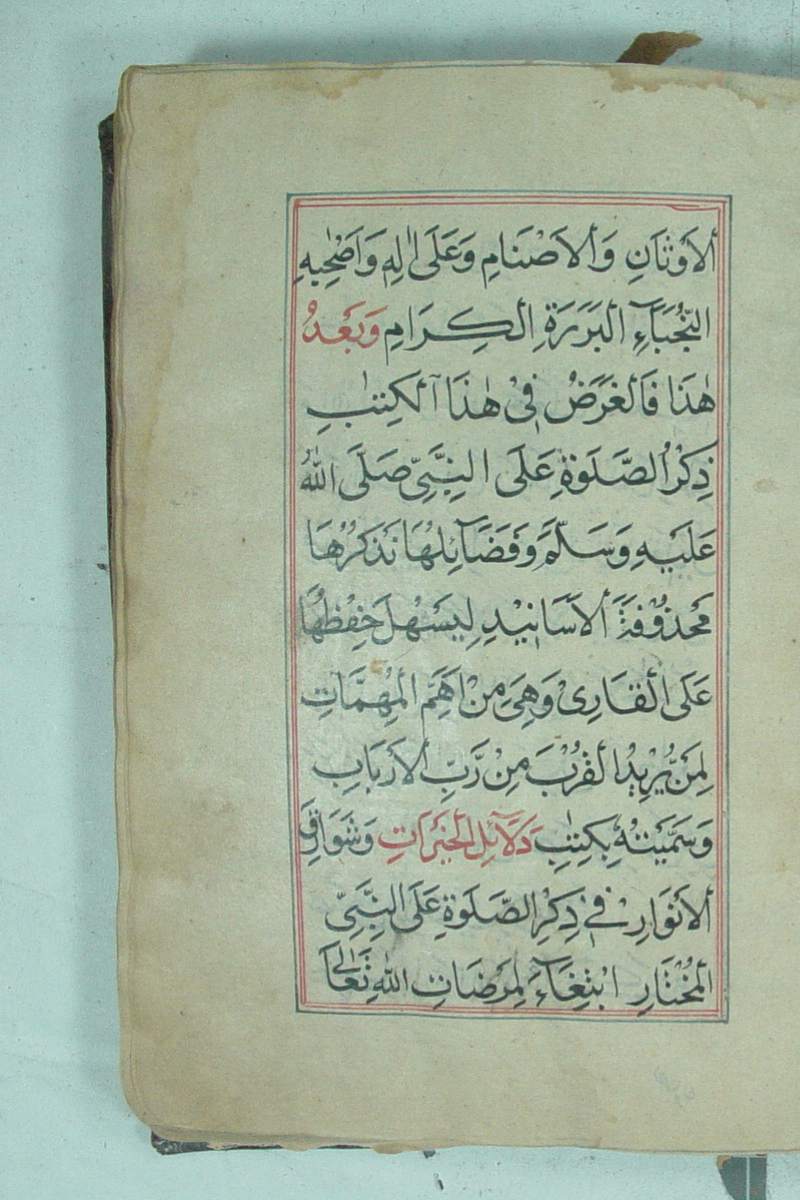 اَلْاَوْثَانِ وَالْاَصْنَامِ وَعَلٰى اٰلِهٖ وَاَصْحٰبِهِ
النُّجَبَآءِ الْبَرَرَةِ الْكِرَامِ وَبَعْدُ
هٰذَا فَالْغَرَضُ فِىْ هٰذَا الْكِتٰبِ
ذِكْرُ الصَّلَوةِ عَلَى النَّبِىِّ صَلَّى اللّٰهُ
عَلَيْهِ وَسَلَّمَ وَفَضَآئِلُهَا نَذْكُرُهَا
مَحْذُوْفَةَ الْاَسَانِيْدِ لِيَسْهُلَ حِفْظُهَا
عَلَى الْقَارِىْ وَهِىَ مِنْ اَهَمِّ الْمُهِمَّاتِ
لِمَنْ يُرِيْدُ الْقُرْبَ مِنْ رَّبِّ الْاَرْبَابِ
وَسَمَّيْتُهُ بِكِتٰبِ دَلَآئِلِ الْخَيْرَاتِ وَشَوَارِقِ
الْاَنْوَارِ فِىْ ذِكْرِ الصَّلَوةِ عَلَى النَّبِىِّ
الْمُخْتَارِ ابْتِغَآءً لِمَرْضَاتِ اللّٰهِ تَعَالٰى